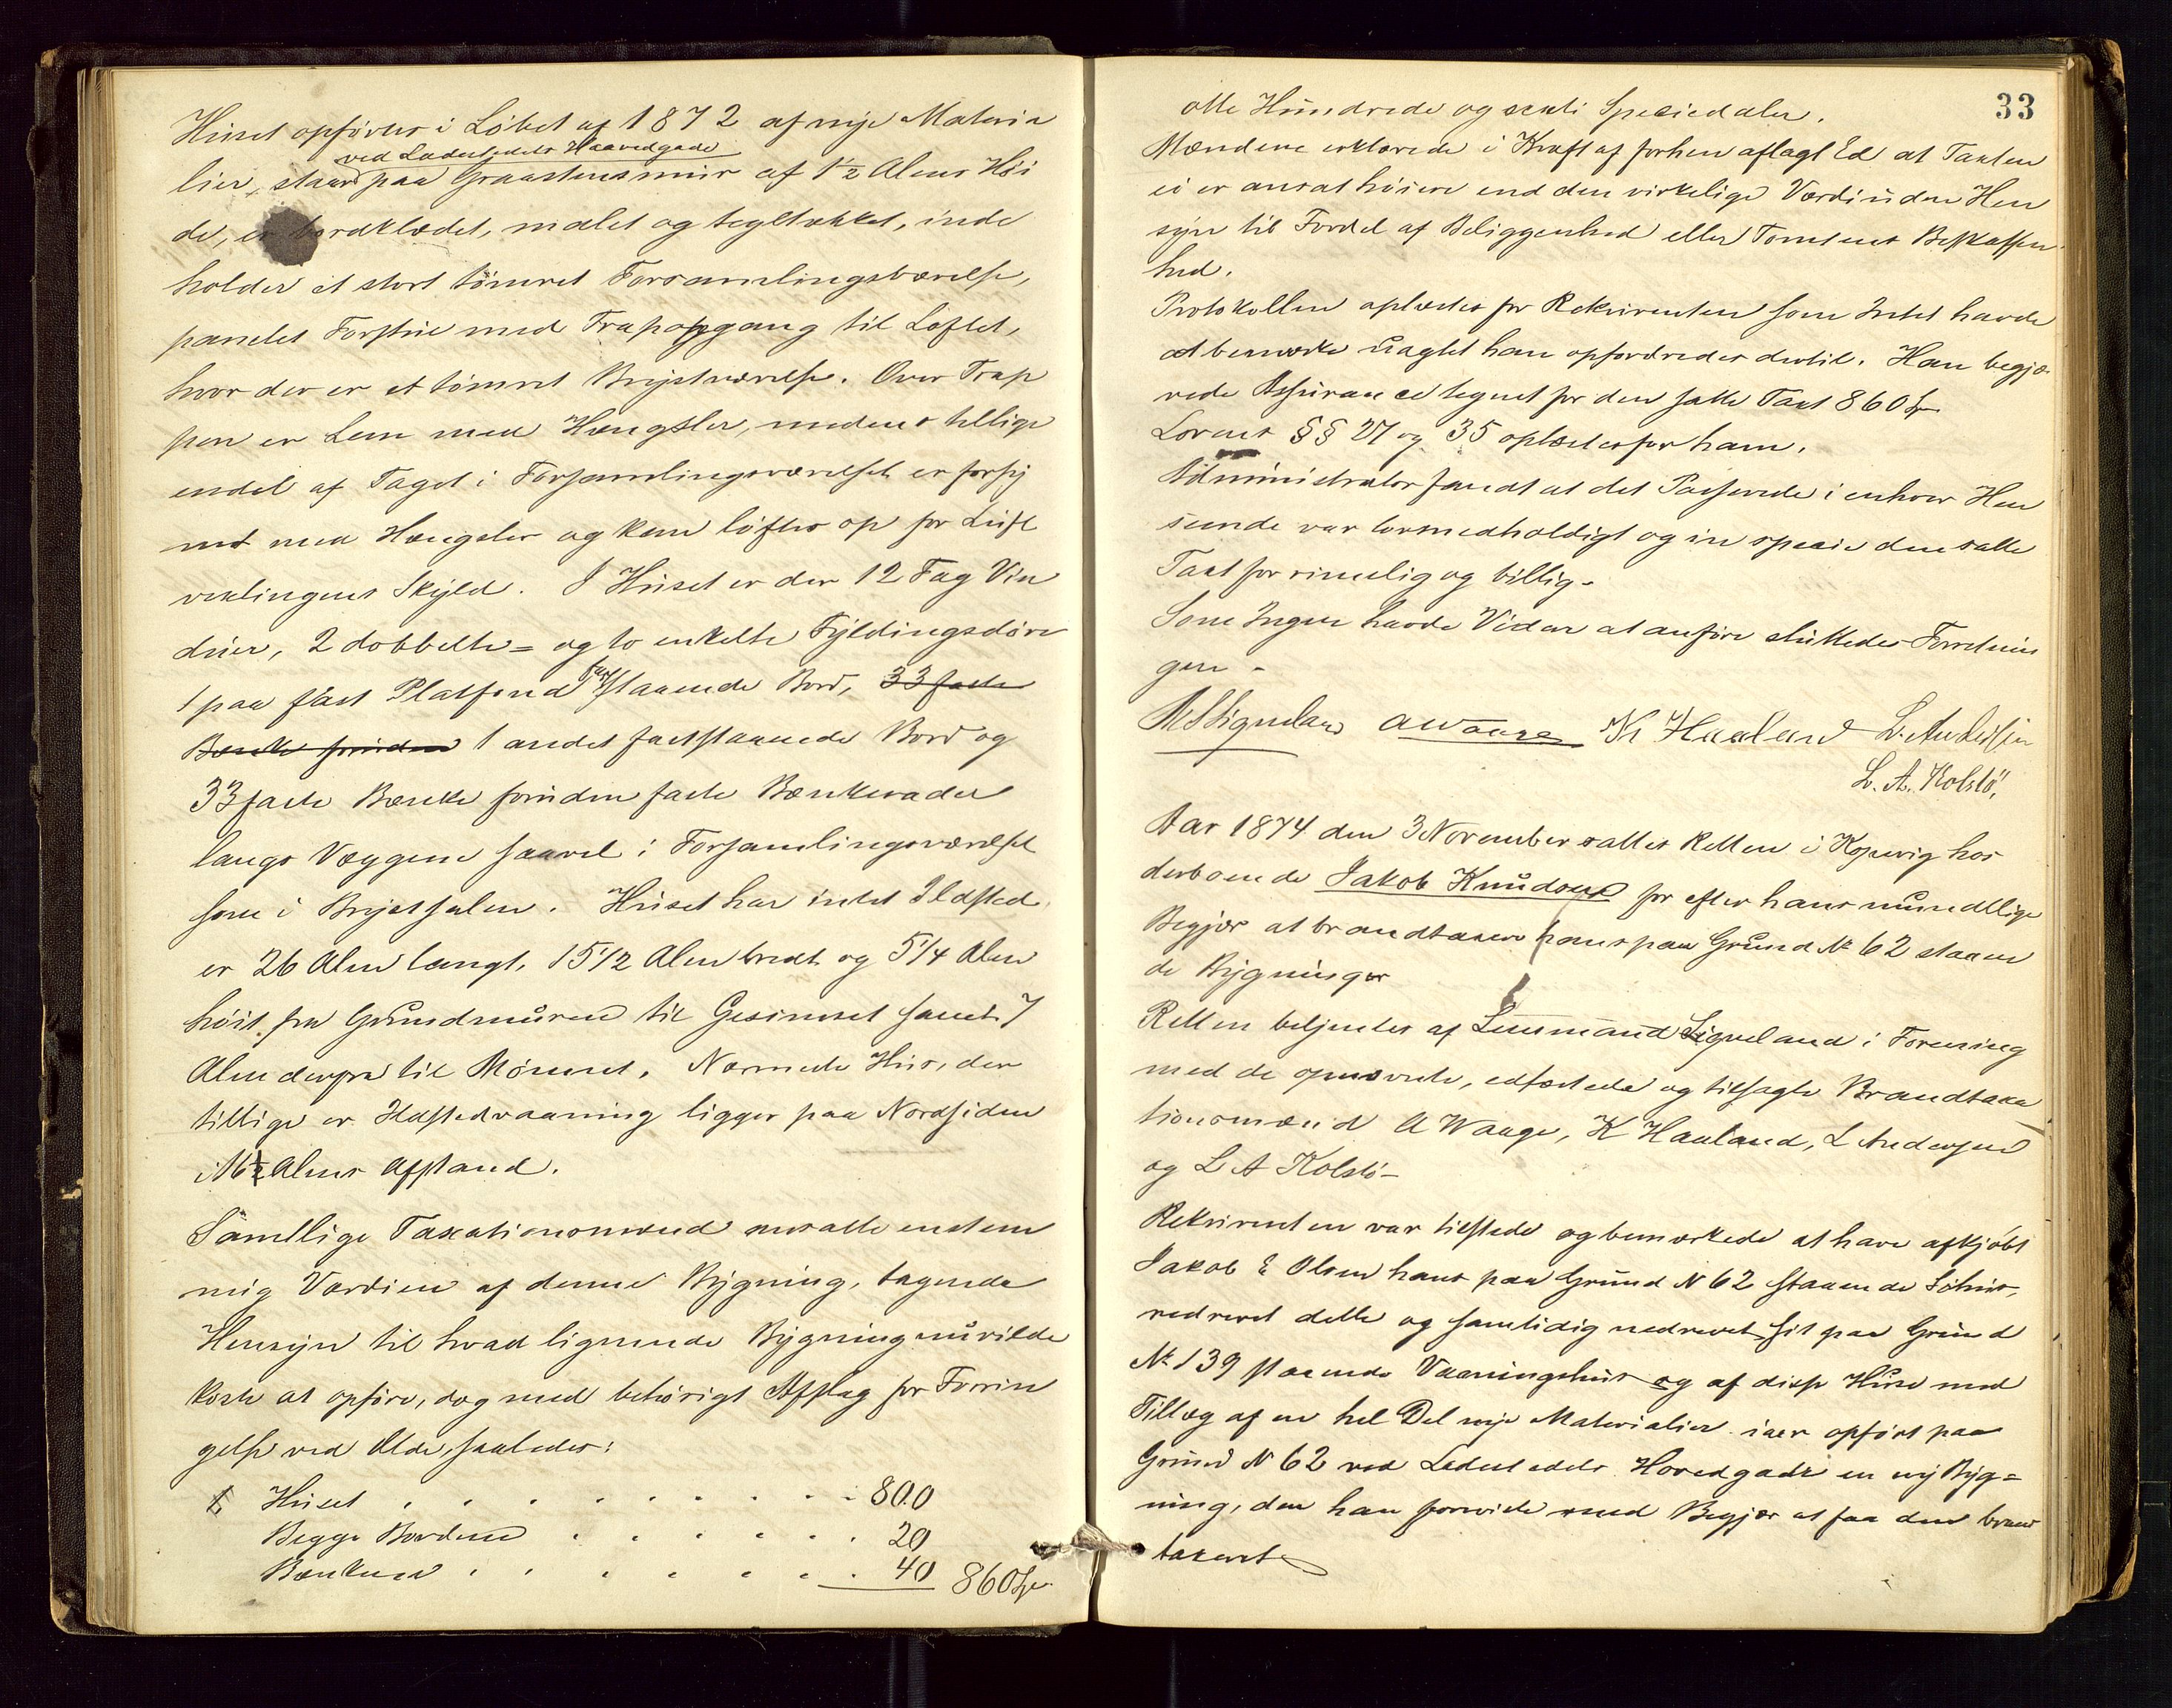 Huset opførtes i Løbet af 1872 af nye Materia
ved Ladestedets Hovedgade
lier, staar paa Graastensmur af 1½ Alens Høi
de, er bordklædet, malet og tegltækket, inde
holder et stort tømret Forsamlingsværelse,
panelet Forstue med Trapopgang til Loftet,
hvor der er et tømret Brystværelse. Over Trap
pen er Lem med Hængsler, medens tillige
endel af Taget i Forsamlingsværelset er forsy
net med Hængsler og kan løftes op for Luft
vexlingens Skyld. I Huset er der 12 Fag Vin
duer, 2 dobbelte= og to enkelte Fyldingsdøre
1 paa fast Platfond faststaaende Bord, 33 faste
Bænke foruden 1 andet faststaaende Bord og
33 faste Bænke foruden faste Bænkerader
langs Væggene saavel i Forsamlingsværelset
som i Brystsalen. Huset har intet Ildsted
er 26 Alen langt, 15 1/2 Alen bredt og 5 1/4 Alen
høit fra Grundmuren til Gesimset samt 7
Alen derfra til Mønnet. Nærmeste Hus, der
tillige er Ildstedvaaning ligger paa Nordsiden
i 16½ Alens Afstand.
Samtlige Taxationsmænd ansatte enstem
mig Værdien af denne Bygning, tagende
Hensyn til hvad lignende Bygning nu vilde
koste at opføre, dog med behørigt Afslag for Forrin
gelse ved Ælde, saaledes:
Huset . . . . . . . . 800
Begge Bordene . . . . . . 20
Bænkene . . . . . . . 40 860 Spd
33
otte Hundrede og sexti Speciedaler.
Mændene erklærede i Kraft af forhen aflagt Ed at Taxten
ei er ansat høiere end den virkelige Værdi uden Hen
syn til Fordel af Beliggenhed eller Tomtens Beskaffen
hed.
Protokollen oplæstes for Rekvirenten som Intet havde
at bemærke uagtet han opfordredes dertil. Han begjæ
rede Assurance tegnet for den satte Taxt 860 Spd
Lovens §§ 27 og 35 oplæstes for ham.
Administrator fandt at det Passerede i enhver Hen
seende var lovmedholdigt og in specie den satte
Taxt for rimelig og billig.
Som Ingen havde Videre at anføre sluttedes Forretnin
gen -
A Waage K Haaland L. Andersen
L. A. Kolstø,
Aar 1874 den 3 November sattes Retten i Kopervig hos
derboende Jakob Knudsen for efter hans mundtlige
Begjær at brandtaxere hans paa Grund № 62 staaen
de Bygninger
Retten betjentes af Lensmand Ligneland i Forening
med de opnævnte, edfæstede og tilsagte Brandtaxa
tionsmænd A Waage, K Haaland, L Andersen
og L A Kolstø -
Rekvirenten var tilstede og bemærkede at have afkjøbt
Jakob E Olsen hans paa Grund № 62 staaende Søhus,
nedrevet dette og samtidig nedrevet sit paa Grund
№ 139 staaende Vaaningshus og af disse Huse med
Tillæg af en hel Del nye Materialier iaar opført paa
Grund № 62 ved Ladestedets Hovedgade en ny Byg=
ning, den han foreviste med Begjær at faa den brand
taxeret